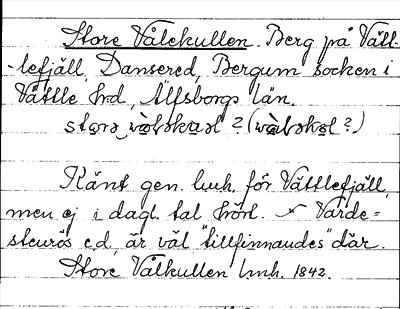 Store Vålekullen. Berg på Vätt-
-lefjäll, Dansered, Bergum socken i
Vättle hrd, Älfsborgs län.
storə
Känt gen. lmh. för Vättlefjäll,
men ej i dagl. tal hört. Varde=
stenrös e.d. är väl "tillfinnandes" där.
Store Valkullen lmh. 1842.